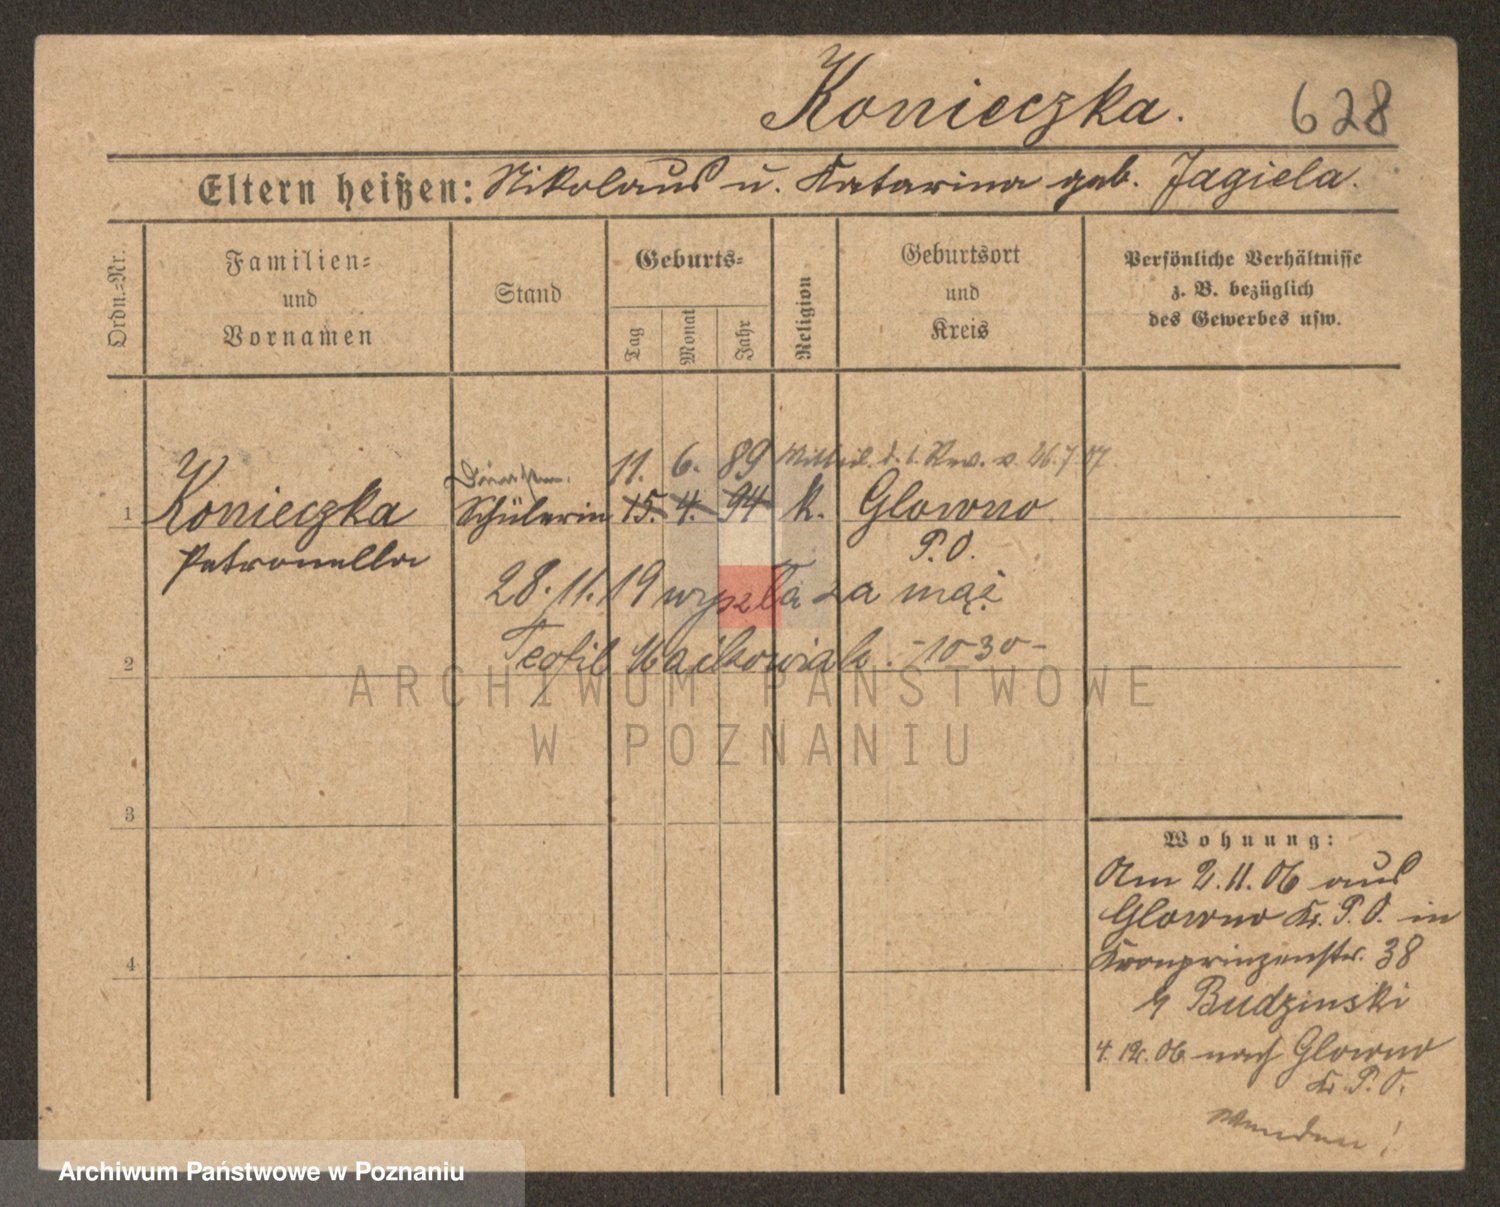 Konieczka. 628
Eltern heißen: Nikolaus u. Katarina geb. Jagiela.
Ordn.-Nr.
Familien-
und
Vornamen
Stand
Geburts-
Tag
Monat
Jahr
Religion
Geburtsort
und
Kreis
Persönliche Verhältnisse
z. B. bezüglich
des Gewerbes usw.
11. 6. 89 Mitteil. d. 1. Rev. v. 26.7.07.
1 Konieczka Schülerin 15. 4. 94 k. Glowno
Petronella
P. O.
28.11.19 wyszła za mąż
2 Teofil -1030-
3
4
Wohnung:
Am 2.11.06 aus
Glowno Kr. P. O. in
Kronprinzenstr. 38
Budzinski
4.12.06 nach Glowno
Kr. P. O.
Wenden!
ARCHIWUM PAŃSTWOWE
W POZNANIU
Archiwum Państwowe w Poznaniu